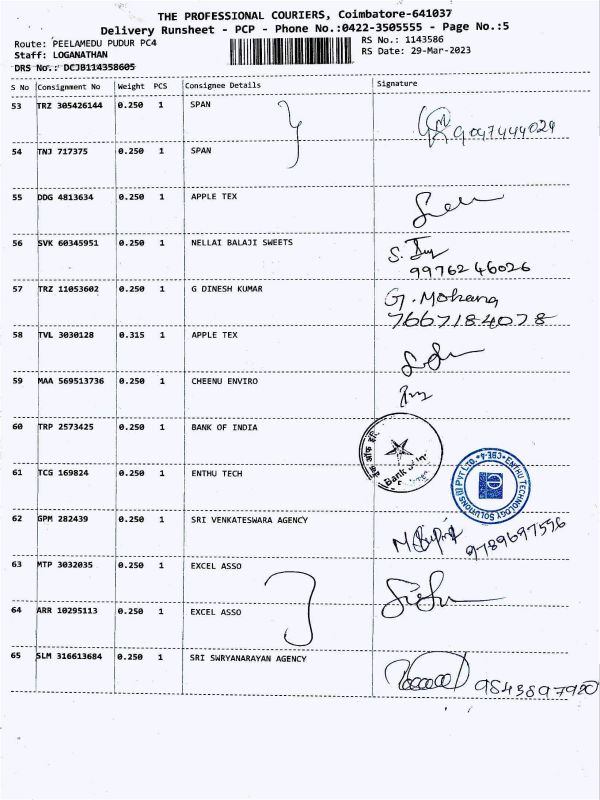 THE PROFESSIONAL COURIERS, Coimbatore-641037
Delivery Runsheet - PCP - Phone No.:0422-3505555 - Page No.:5
Route: PEELAMEDU PUDUR PC4 RS No.: 1143586
Staff: LOGANATHAN RS Date: 29-Mar-2023
DRS No.: DCJB114358605
S No Consignment No Weight PCS Consignee Details Signature
53 TRZ 305426144 0.250 1 SPAN
9047444029
54 TNJ 717375 0.250 1 SPAN
55 DDG 4813634 0.250 1 APPLE TEX
56 SVK 60345951 0.250 1 NELLAI BALAJI SWEETS
99762 46026
57 TRZ 11053602 0.250 1 G DINESH KUMAR G. Mohana
7667184078
58 TVL 3030128 0.315 1 APPLE TEX
59 MAA 569513736 0.250 1 CHEENU ENVIRO
60 TRP 2573425 0.250 1 BANK OF INDIA
Bank of In
61 TCG 169824 0.250 1 ENTHU TECH
ENTHU TECHNOLOGY SOLUTIONS (I) PVT LTD.
62 GPM 282439 0.250 1 SRI VENKATESWARA AGENCY
9789697596
63 MTP 3032035 0.250 1 EXCEL ASSO
64 ARR 10295113 0.250 1 EXCEL ASSO
65 SLM 316613684 0.250 1 SRI SWRYANARAYAN AGENCY
9843897980